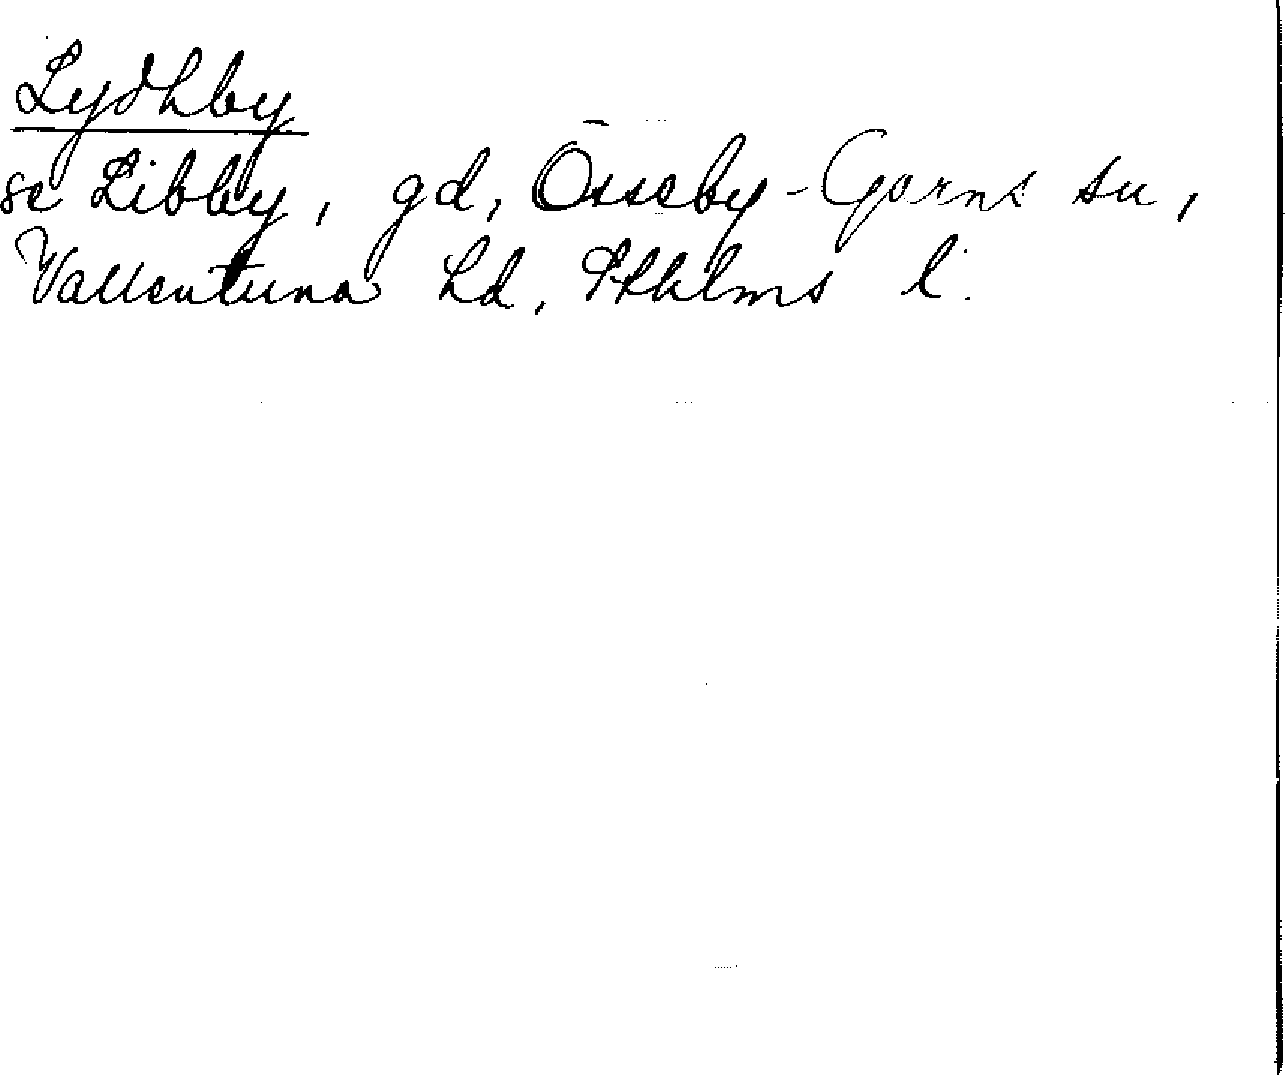 Lydhby
se Libby, gd, Össeby-Garns sn,
Vallentuna hd, Sthlms l.